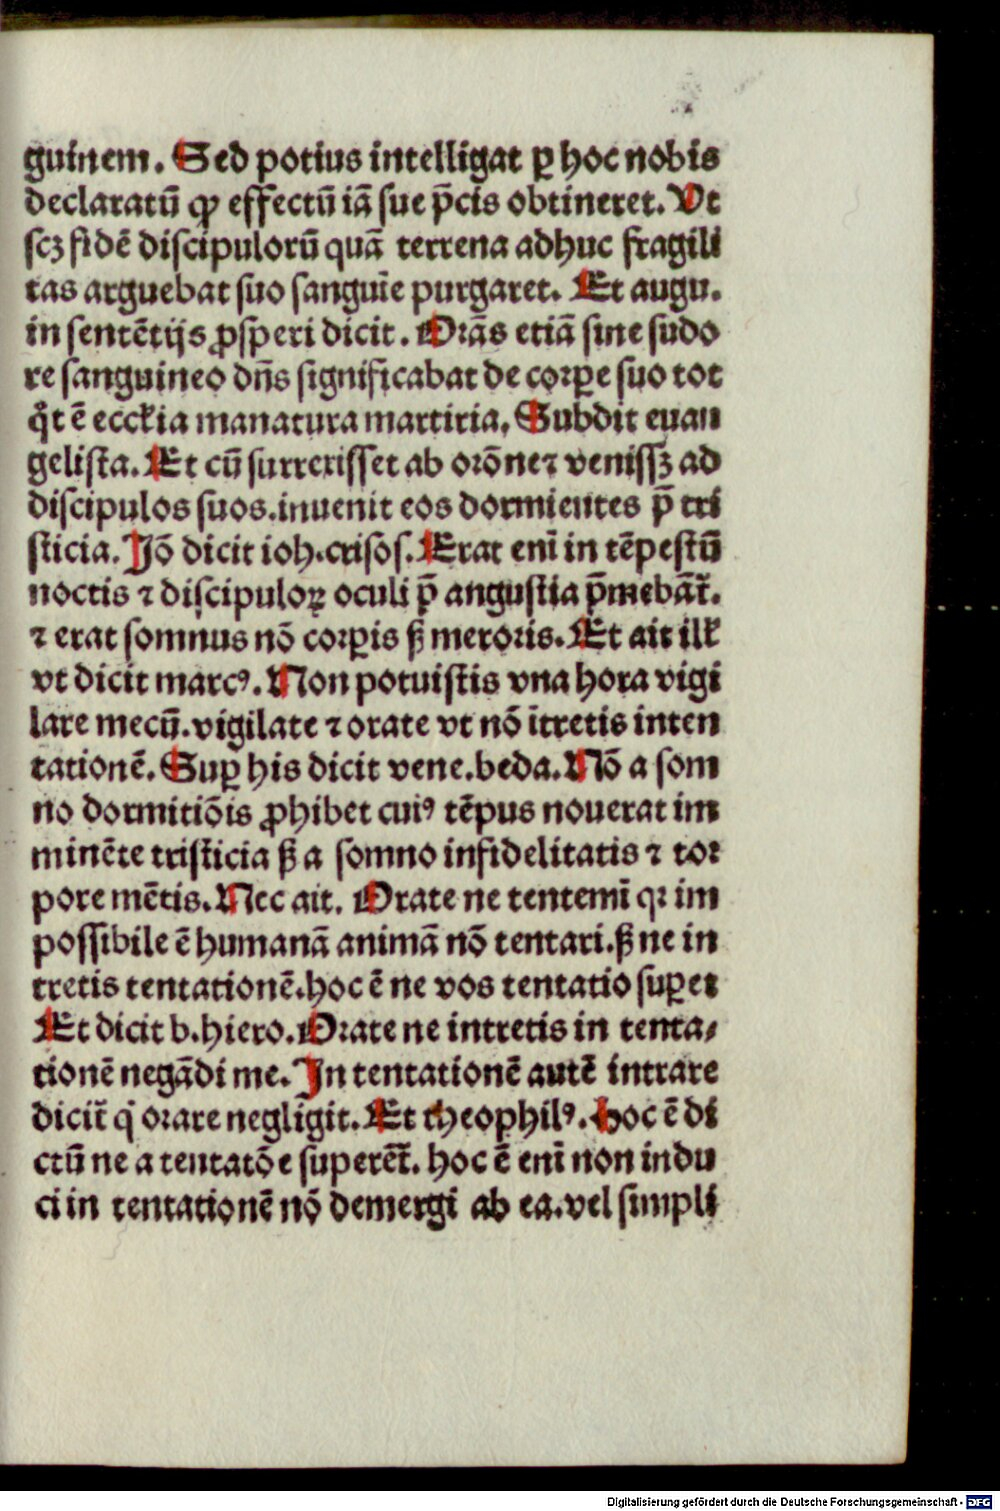 guinem. Sed potius intelligat ꝑ hoc nobis
declaratū ꝙ effectū iā sue p̄cis obtineret. Vt
scꝫ fidē discipulorū quā terrena adhuc fragili
tas arguebat suo sanguīe purgaret. Et augu.
in sentētijs ꝓsperi dicit. Orās etiā sine sudo
re sanguineo dn̄s significabat de corꝑe suo tot
q̊t ē eccľia manatura martiria. Subdit euan
gelista. Et cū surrexisset ab orōne ⁊ venissꝫ ad
discipulos suos. inuenit eos dormientes p̄ tri
sticia. Jō dicit ioh. crisos. Erat enī in tēpestū
noctis ⁊ discipuloꝝ oculi p̄ angustia p̄mebāt̄.
⁊ erat somnus nō corꝑis ꝭ meroris. Et ait illꝭ
vt dicit marcꝰ. Non potuistis vna hora vigi
lare mecū. vigilate ⁊ orate vt nō ītretis inten
tationē. Suꝑ his dicit vene. beda. Nō a som
no dormitiōis ꝓhibet cuiꝰ tēpus nouerat im
minēte tristicia ꝭ a somno infidelitatis ⁊ tor
pore mētis. Nec ait. Orate ne tentemī qꝛ im
possibile ē humanā animā nō tentari. ꝭ ne in
tretis tentationē. hoc ē ne vos tentatio suꝑet
Et dicit b. hiero. Orate ne intretis in tenta⸗
tionē negādi me. Jn tentationē autē intrare
dicit̄ q̇ orare negligit. Et theophilꝰ. Hoc ē di
ctū ne a tentatōe superēt̄. hoc ē enī non indu
ci in tentationē nō demergi ab ea. vel simpli
Digitalisierung gefördert durch die Deutsche Forschungsgemeinschaft - DFG